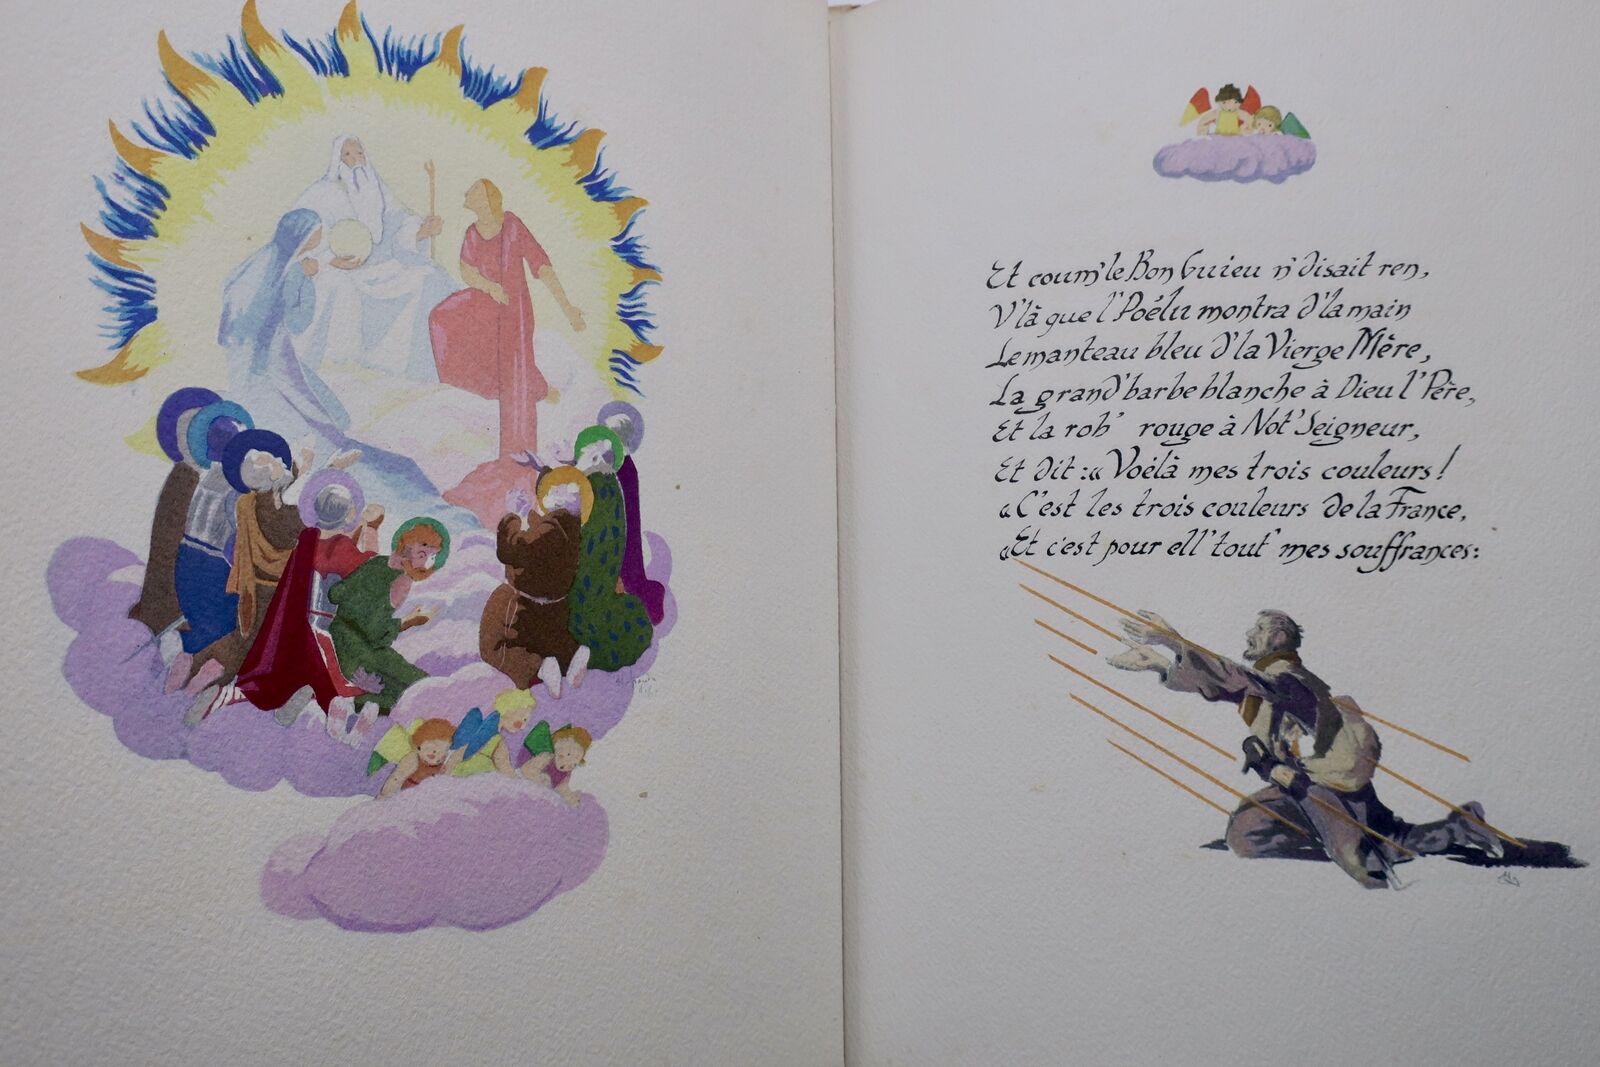 Et coum' le Bon Guieu n' disait ren,
V'là que l'Poélu montra d'la main
Le manteau bleu d'la Vierge Mère,
La grand' barbe blanche à Dieu l'Père,
Et la rob' rouge à Not' Seigneur,
Et dit : « Voélà mes trois couleurs !
« C'est les trois couleurs de la France,
« Et c'est pour ell' tout' mes souffrances :